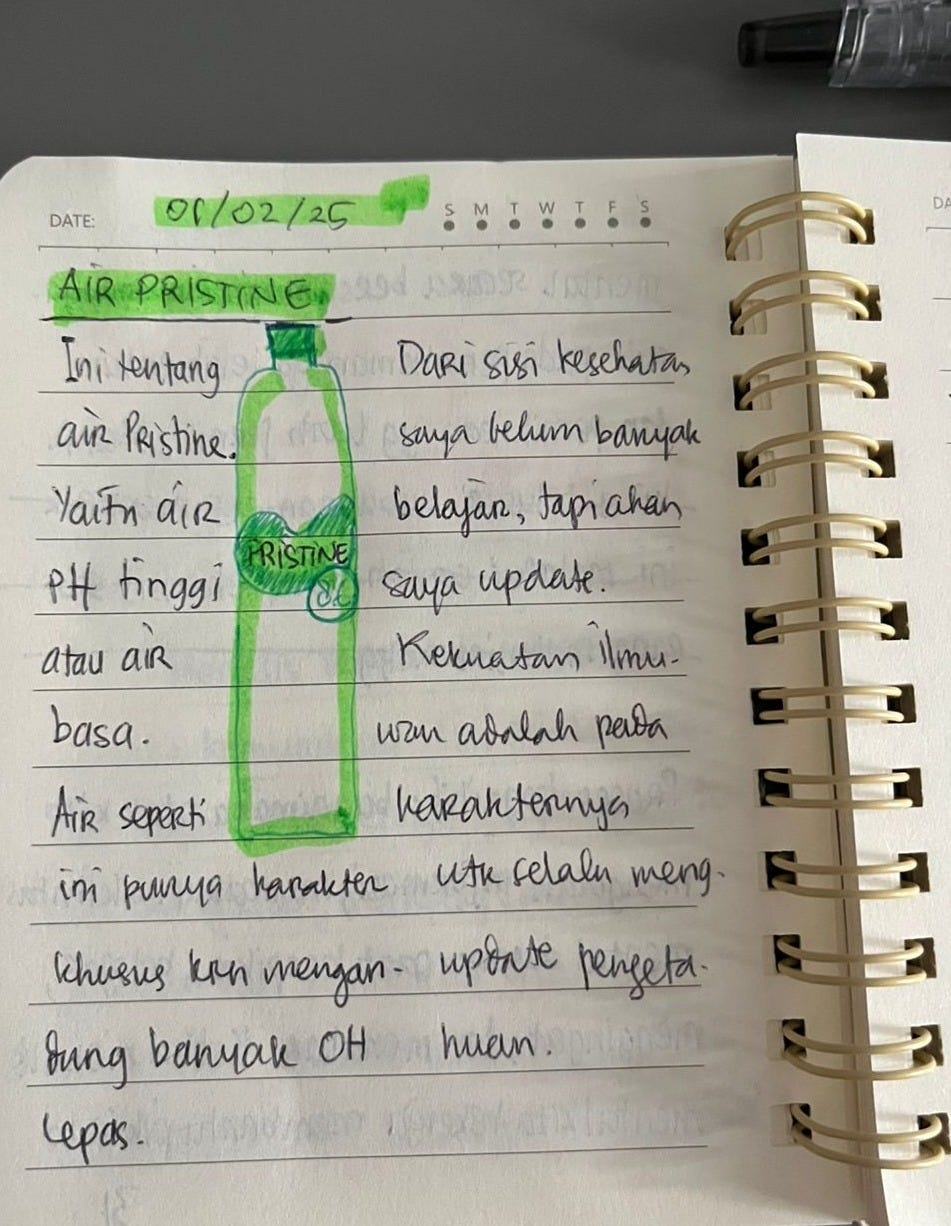 DATE: 01/02/25 S M T W T F S
AIR PRISTINE
Ini tentang
air Pristine.
Yaitu air
PH tinggi
atau air
basa.
Air seperti
ini punya karakter
khusus krn mengan-
dung banyak OH
lepas.
PRISTINE
Dari sisi kesehatan
saya belum banyak
belajar, tapi akan
saya update.
Kekuatan ilmu-
wan adalah pada
karakternya
utk selalu meng-
update pengeta-
huan.
DA